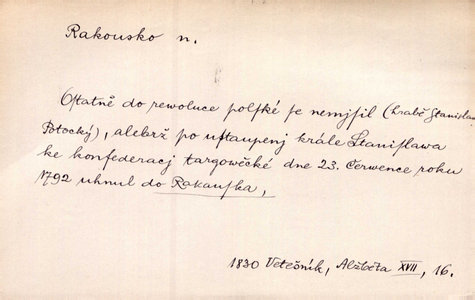 Rakousko n.
Ostatně do rewoluce polſké ſe nemjſil (hrabě Stanislaw
Potocký), alebrž po uſtaupenj krále Staniſlawa
ke konfederacj targowěcké dne 23. Čerwence roku
1792 uhnul do Rakauſka,
1830 Vetešník, Alžběta XVII, 16.